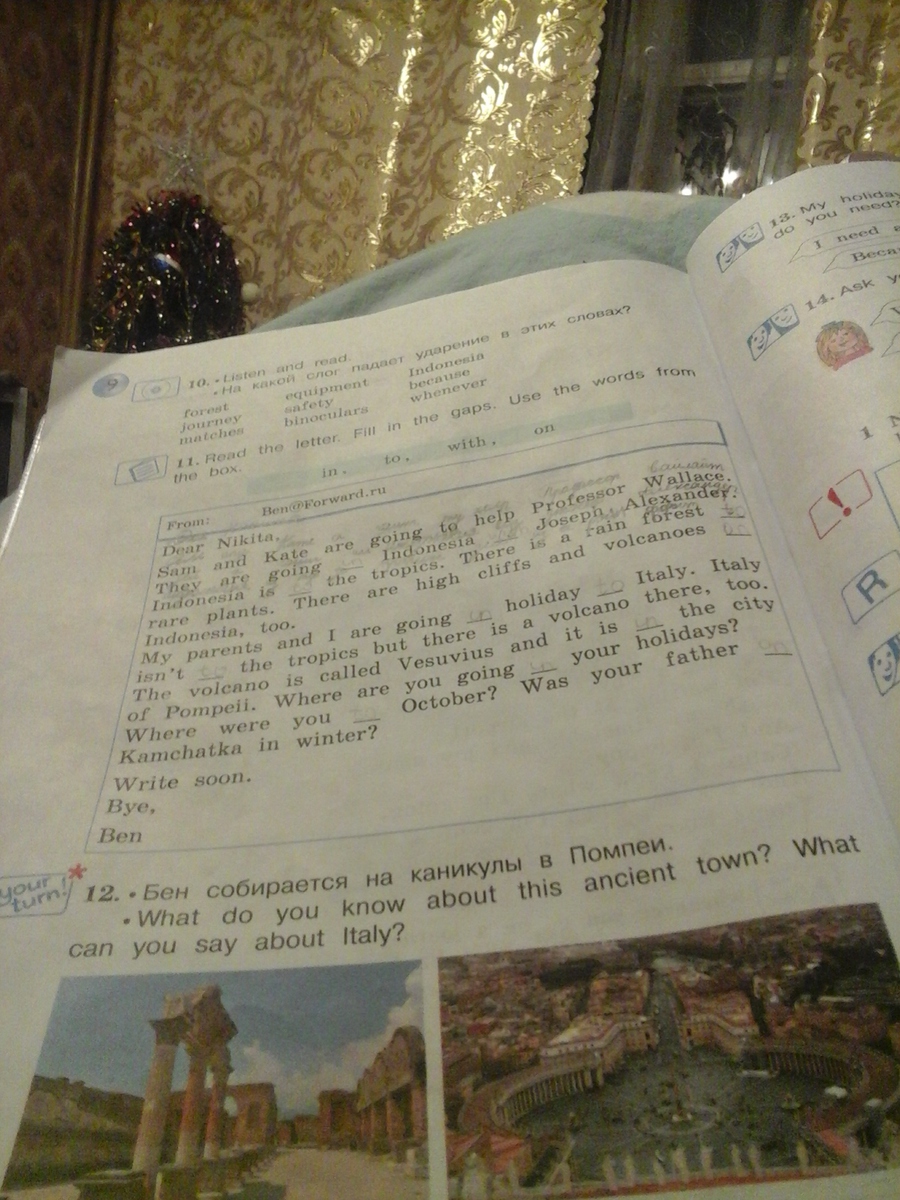 9
10. • Listen and read.
• На какой слог падает ударение в этих словах?
forest equipment Indonesia
journey safety because
matches binoculars whenever
11. Read the letter. Fill in the gaps. Use the words from
the box.
in, to, with, on
From: Ben@Forward.ru
Dear Nikita,
Sam and Kate are going to help Professor Wallace.
They are going __ Indonesia __ Joseph Alexander.
Indonesia is __ the tropics. There is a rain forest to
rare plants. There are high cliffs and volcanoes on
Indonesia, too.
My parents and I are going on holiday to Italy. Italy
isn't to the tropics but there is a volcano there, too.
The volcano is called Vesuvius and it is in the city
of Pompeii. Where are you going __ your holidays?
Where were you __ October? Was your father on
Kamchatka in winter?
Write soon.
Bye,
Ben
your turn!*
12. • Бен собирается на каникулы в Помпеи.
• What do you know about this ancient town? What
can you say about Italy?
13. My holiday
do you need?
I need a
14. Ask
1
!
R